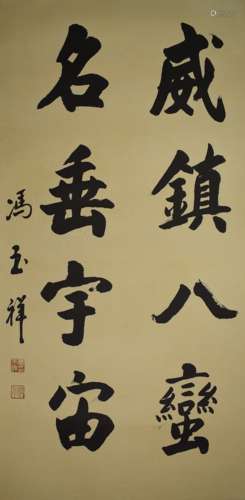 威鎮八蠻
名垂宇宙
馮玉祥